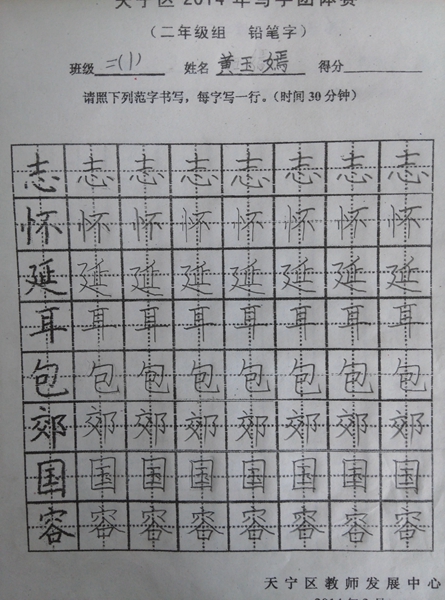 天宁区2014年写字团体赛
（二年级组 铅笔字）
班级 二(1) 姓名 黄玉嫣 得分
请照下列范字书写，每字写一行。（时间30分钟）
志 志 志 志 志 志 志 志
怀 怀 怀 怀 怀 怀 怀 怀
延 延 延 延 延 延 延 延
耳 耳 耳 耳 耳 耳 耳 耳
包 包 包 包 包 包 包 包
郊 郊 郊 郊 郊 郊 郊 郊
国 国 国 国 国 国 国 国
容 容 容 容 容 容 容 容
天宁区教师发展中心